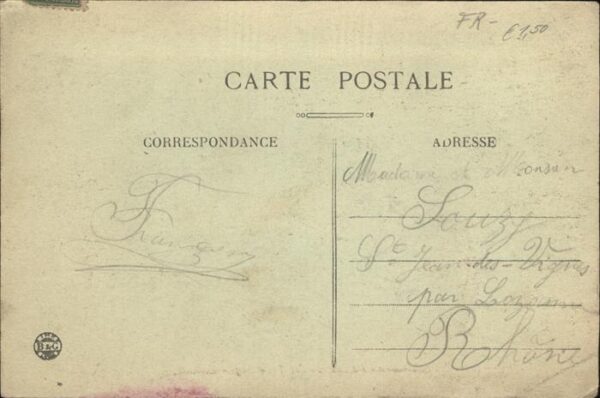 FR-
€1,50
CARTE POSTALE
CORRESPONDANCE
ADRESSE
Madame et Monsieur
Souzy
St Jean-des-Vignes
par Lozanne
Rhône
B&G